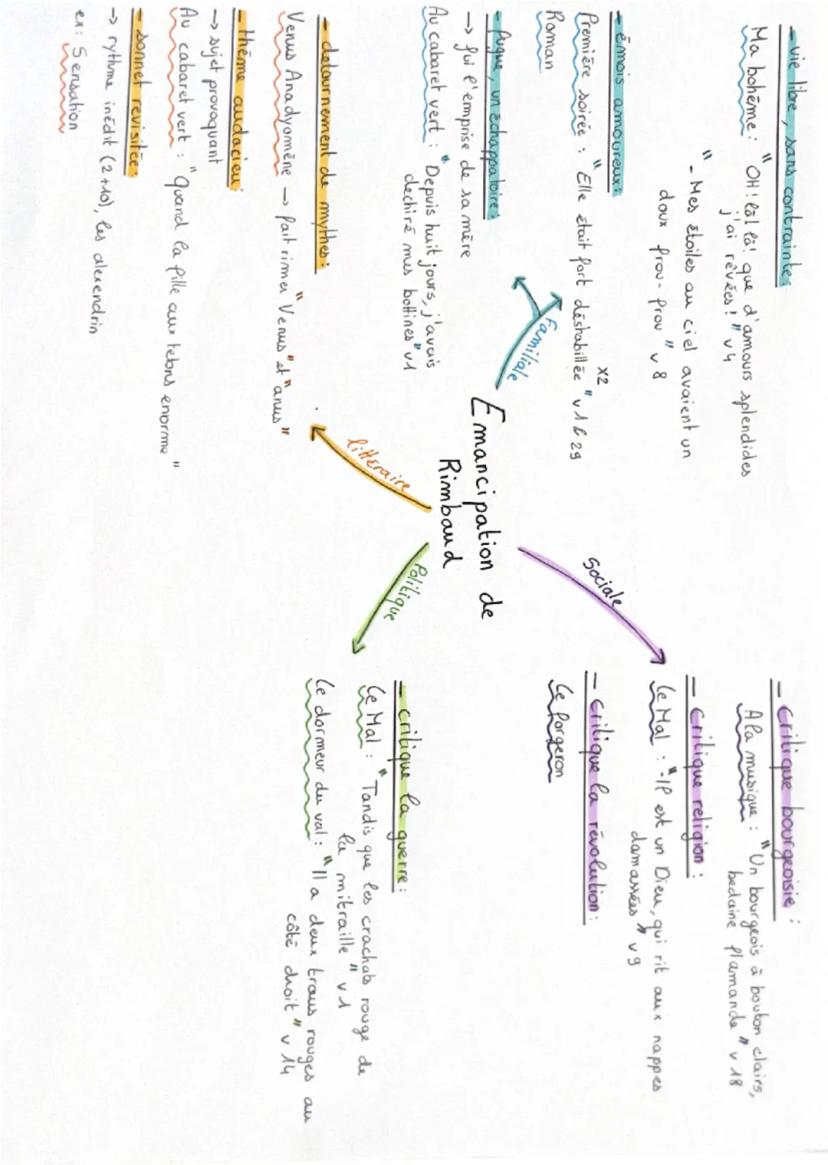 Emancipation de
Rimbaud
familiale
- vie libre, sans contrainte
Ma bohème : "OH! làl là! que d'amours splendides
j'ai rêvées!" v4
"- Mes étoiles au ciel avaient un
doux frou-frou" v8
- émois amoureux:
x2
Première soirée : "Elle était fort déshabillée" v1 & 29
Roman
- fugue, un échappatoire:
→ fui l'emprise de sa mère
Au cabaret vert : "Depuis huit jours, j'avais
déchiré mes bottines" v1
littéraire
- détournement de mythes:
Venus Anadyomène → fait rimer "Venus" et "anus"
- thème audacieu:
→ sujet provoquant
Au cabaret vert : "Quand la fille aux tétons enorme"
- sonnet revisitée:
→ rythme inédit (2+10), les alexendrin
ex: Sensation
Sociale
- Critique bourgeoisie :
A la musique : "Un bourgeois à bouton clairs,
bedaine flamande" v18
- Critique religion :
Le Mal : "-Il est un Dieu, qui rit aux nappes
damassées" v9
- Critique la révolution:
Le forgeron
Politique
- critique la guerre:
Le Mal : "Tandis que les crachats rouge de
la mitraille" v1
Le dormeur du val : "Il a deux trous rouges au
côté droit" v14